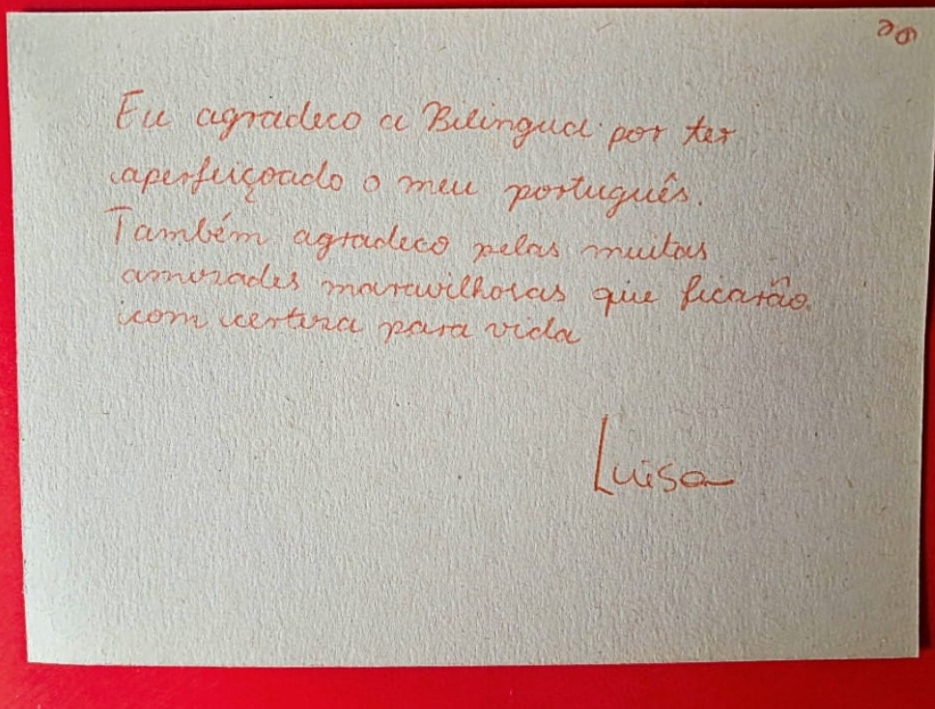 Eu agradeco a Bilingual por ter
aperfeiçoado o meu português.
Também agradeco pelas muitas
amizades maravilhosas que ficarão
com certeza para vida
Luisa